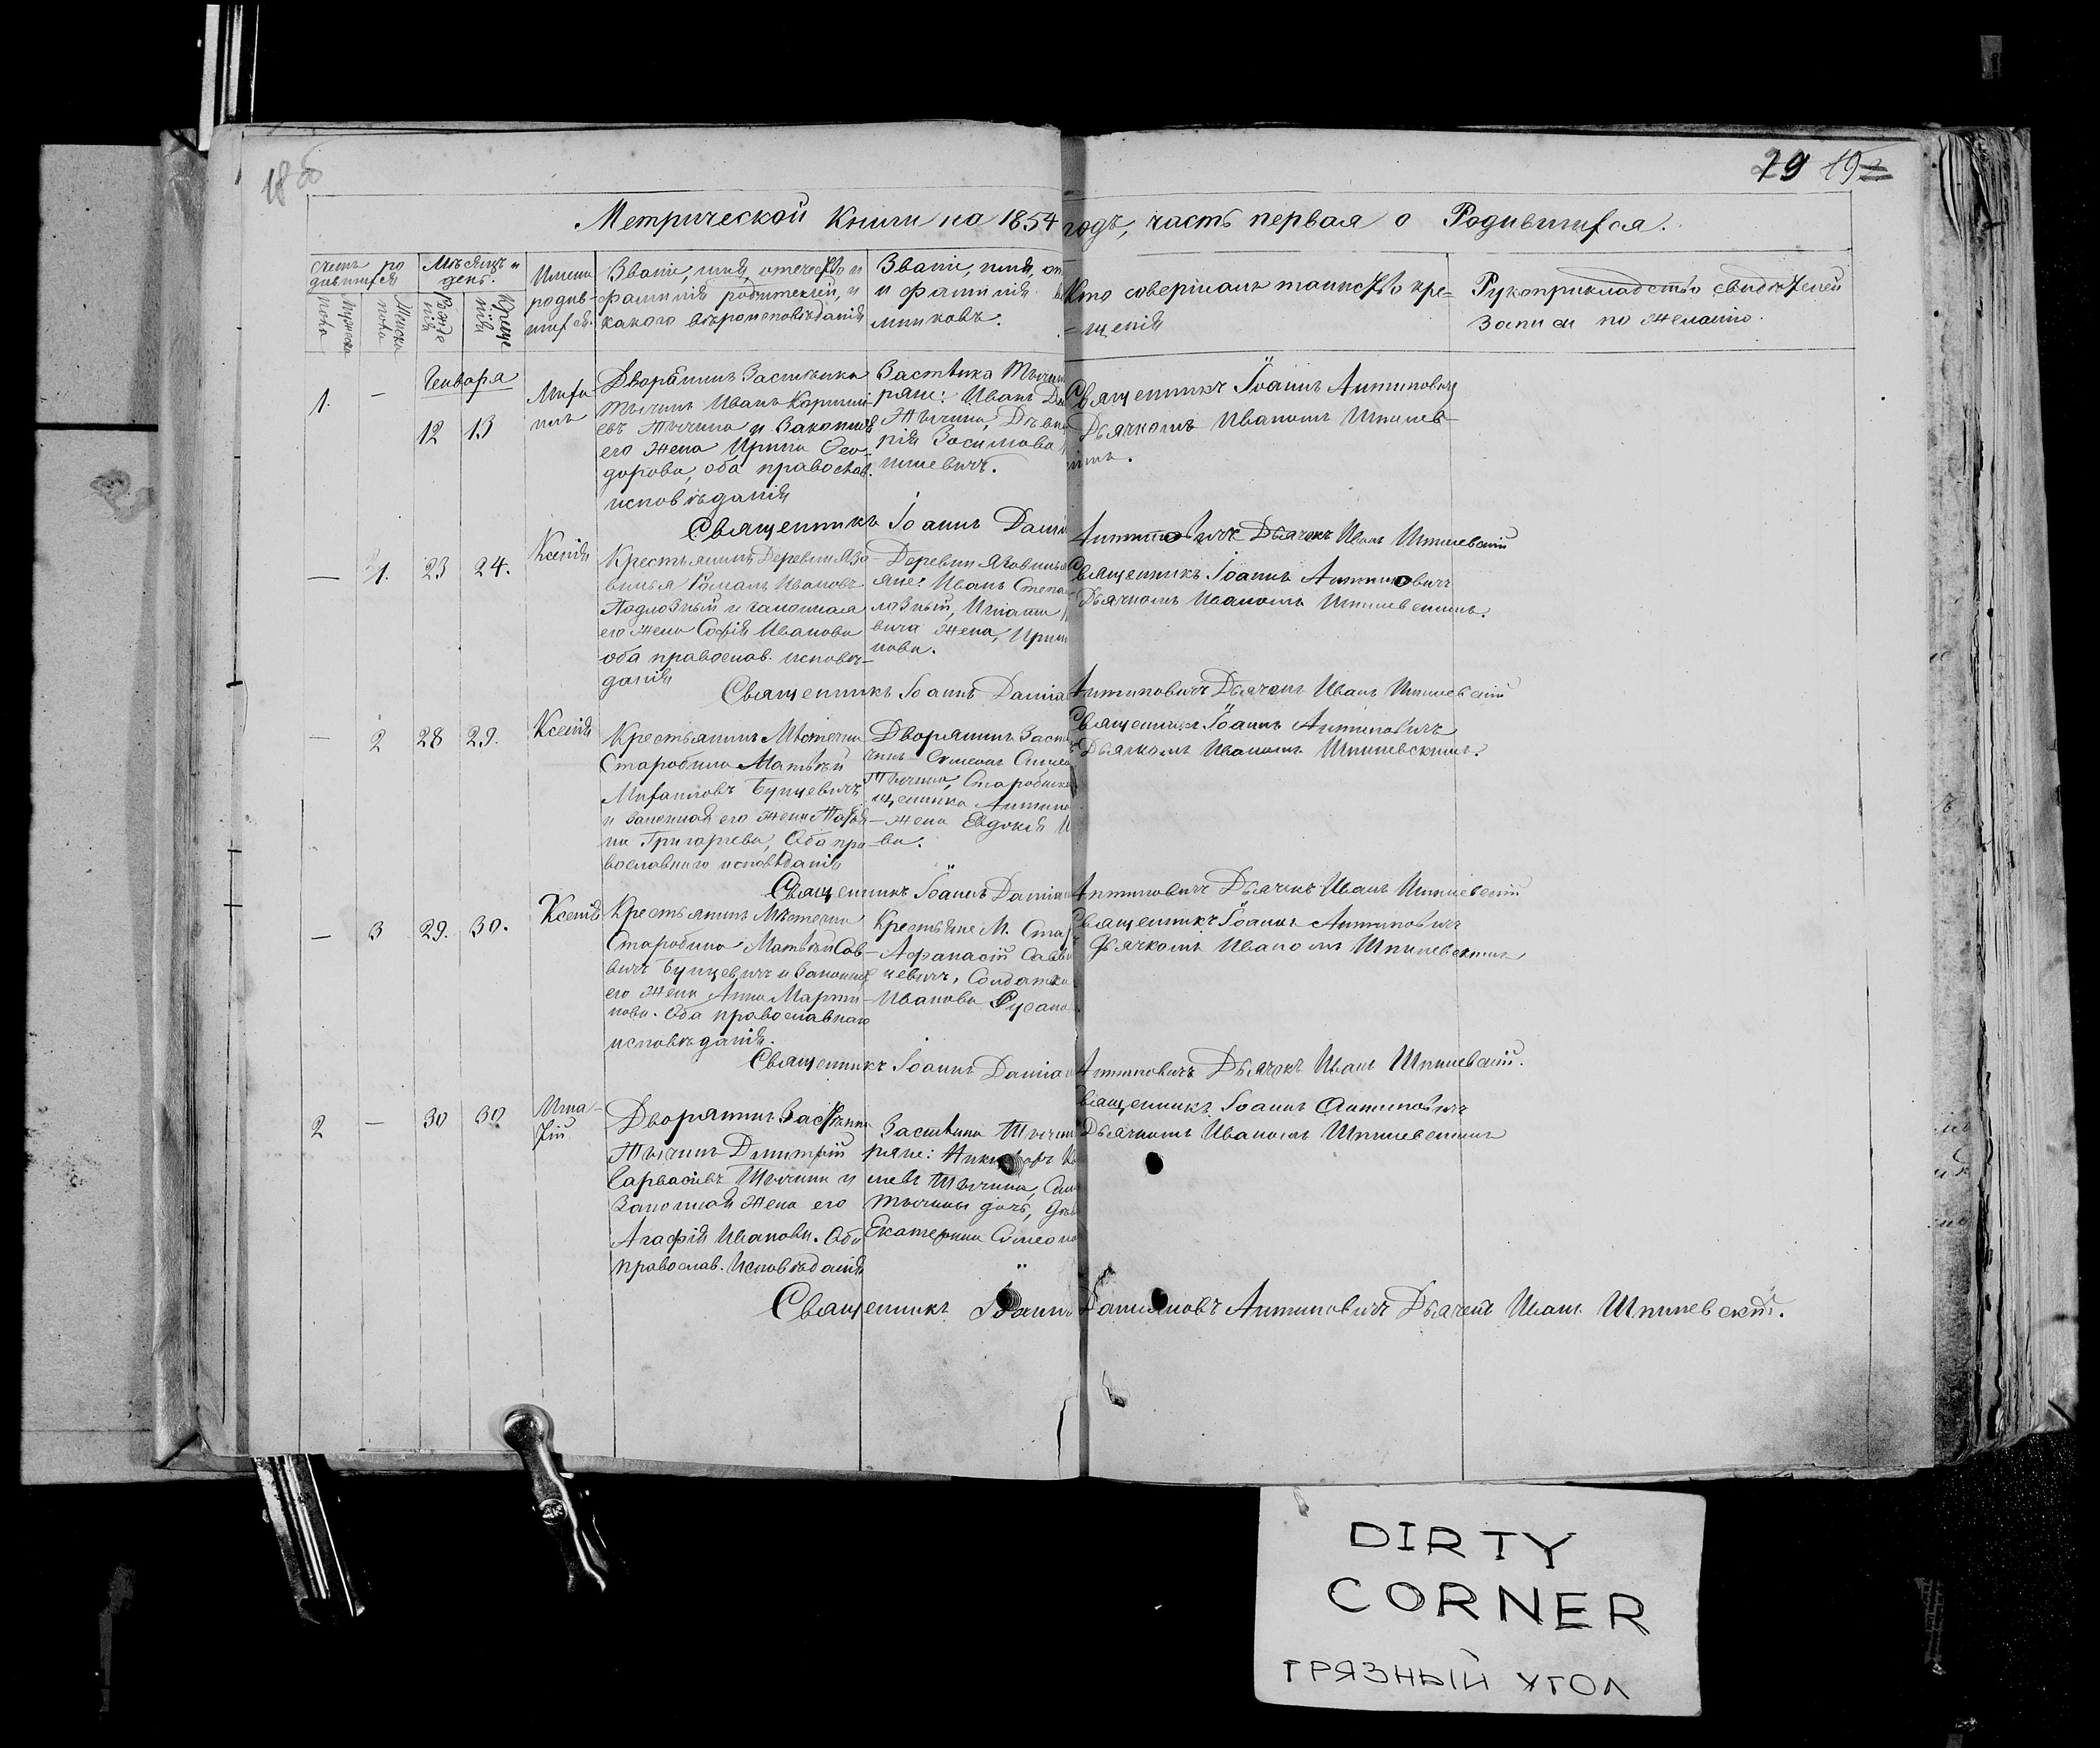 18 об
29 19
Метрической Книги на 1854 годъ, часть первая о Родившихся.
счетъ родившихся
Мужеска пола
Женска пола
Мѣсяцъ и день.
Рожденія
Крещенія
Имена родившихся.
Званіе, имя, отечество и
фамилія родителей, и
какого вѣроисповѣданія
Званіе, имя, от
и фамилія
мниковъ.
Кто совершалъ таинство кре=
=щенія
Рукоприкладство свидѣтелей
записи по желанію.
Генваря
1. – 12 13
Миха
илъ
Дворянинъ Застѣнка
Тычинъ Иванъ
евъ Тычина и Законная
его жена Ирина Ѳео-
дорова, оба православ.
исповѣданія
Застѣнка Тычин
ряне: Иванъ
Тычина, Дѣви
рія Зосимова
Священникъ Іоаннъ Антиповичъ
Дьячкомъ Иваномъ Шпилев-
Священникъ Іоаннъ Даміа Антиповичъ Дьячокъ Иванъ Шпилевскій
– 1. 23 24.
Ксенія
Крестьянинъ Деревни Язо
Романъ Ивановъ
Подлозный и законная
его жена Софія Иванова
оба православ. исповѣ-
данія
Деревни
яне: Иванъ Степа
лозный, Игнатія
вича жена, Ирин
нова.
Священникъ Іоаннъ Антиповичъ
Дьячкомъ Иваномъ Шпилевскимъ.
Священникъ Іоаннъ Даміа Антиповичъ Дьячокъ Иванъ Шпилевскій
– 2 28 29.
Ксенія
Крестьянинъ Мѣстечка
Старобина Матѳѣй
Михаиловъ Бунцевичъ
и законная его жена
на Григорьева, Оба пра
вославнаго исповѣданія
Дворянинъ Засті
чинъ Симеонъ
Тычина, Старобинс
щенника Антипо
– жена Евдокія И
ва.
Священникъ Іоаннъ Антиповичъ
Дьячкомъ Иваномъ Шпилевскимъ.
Священникъ Іоаннъ Даміа Антиповичъ Дьячокъ Иванъ Шпилевскій
– 3 29. 30.
Ксенія
Крестьянинъ Мѣстечка
Старобина Матѳѣй Сав-
вичъ Бунцевичъ и законная
его жена Анна Марти-
нова. Оба православнаго
исповѣданія.
Крестьяне М. Ста
Афанасій Савви
цевичъ, Солдатка
Иванова Русано
Священникъ Іоаннъ Антиповичъ
Дьячкомъ Иваномъ Шпилевскимъ
Священникъ Іоаннъ Даміа Антиповичъ Дьячокъ Иванъ Шпилевскій.
2 – 30 30
Игна-
тій
Дворянинъ Застѣнка
Тычинъ Димитрій
Тычина и
Законная жена его
Агафія Иванова. Оба
православ. Исповѣданія
Застѣнка Тычин
ряне:
Тычина,
Тычины дочь, дѣв
Екатерина Симеоно
Священникъ Іоаннъ Антиповичъ
Дьячкомъ Иваномъ Шпилевскимъ
Священникъ Іоаннъ Даміановъ Антиповичъ Дьячокъ Иванъ Шпилевскій.
DIRTY
CORNER
ГРЯЗНЫЙ УГОЛ